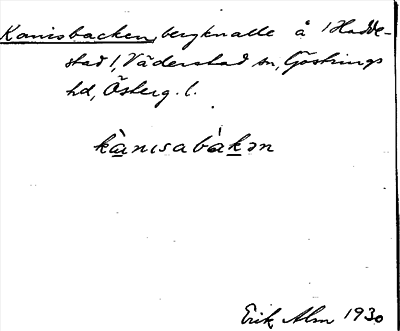 Kanisbacken, bergknalle å 1 Hadde-
stad 1, Väderstad sn, Göstrings
hd, Österg. l.
kànɩsabàkən
Erik Alm 1930